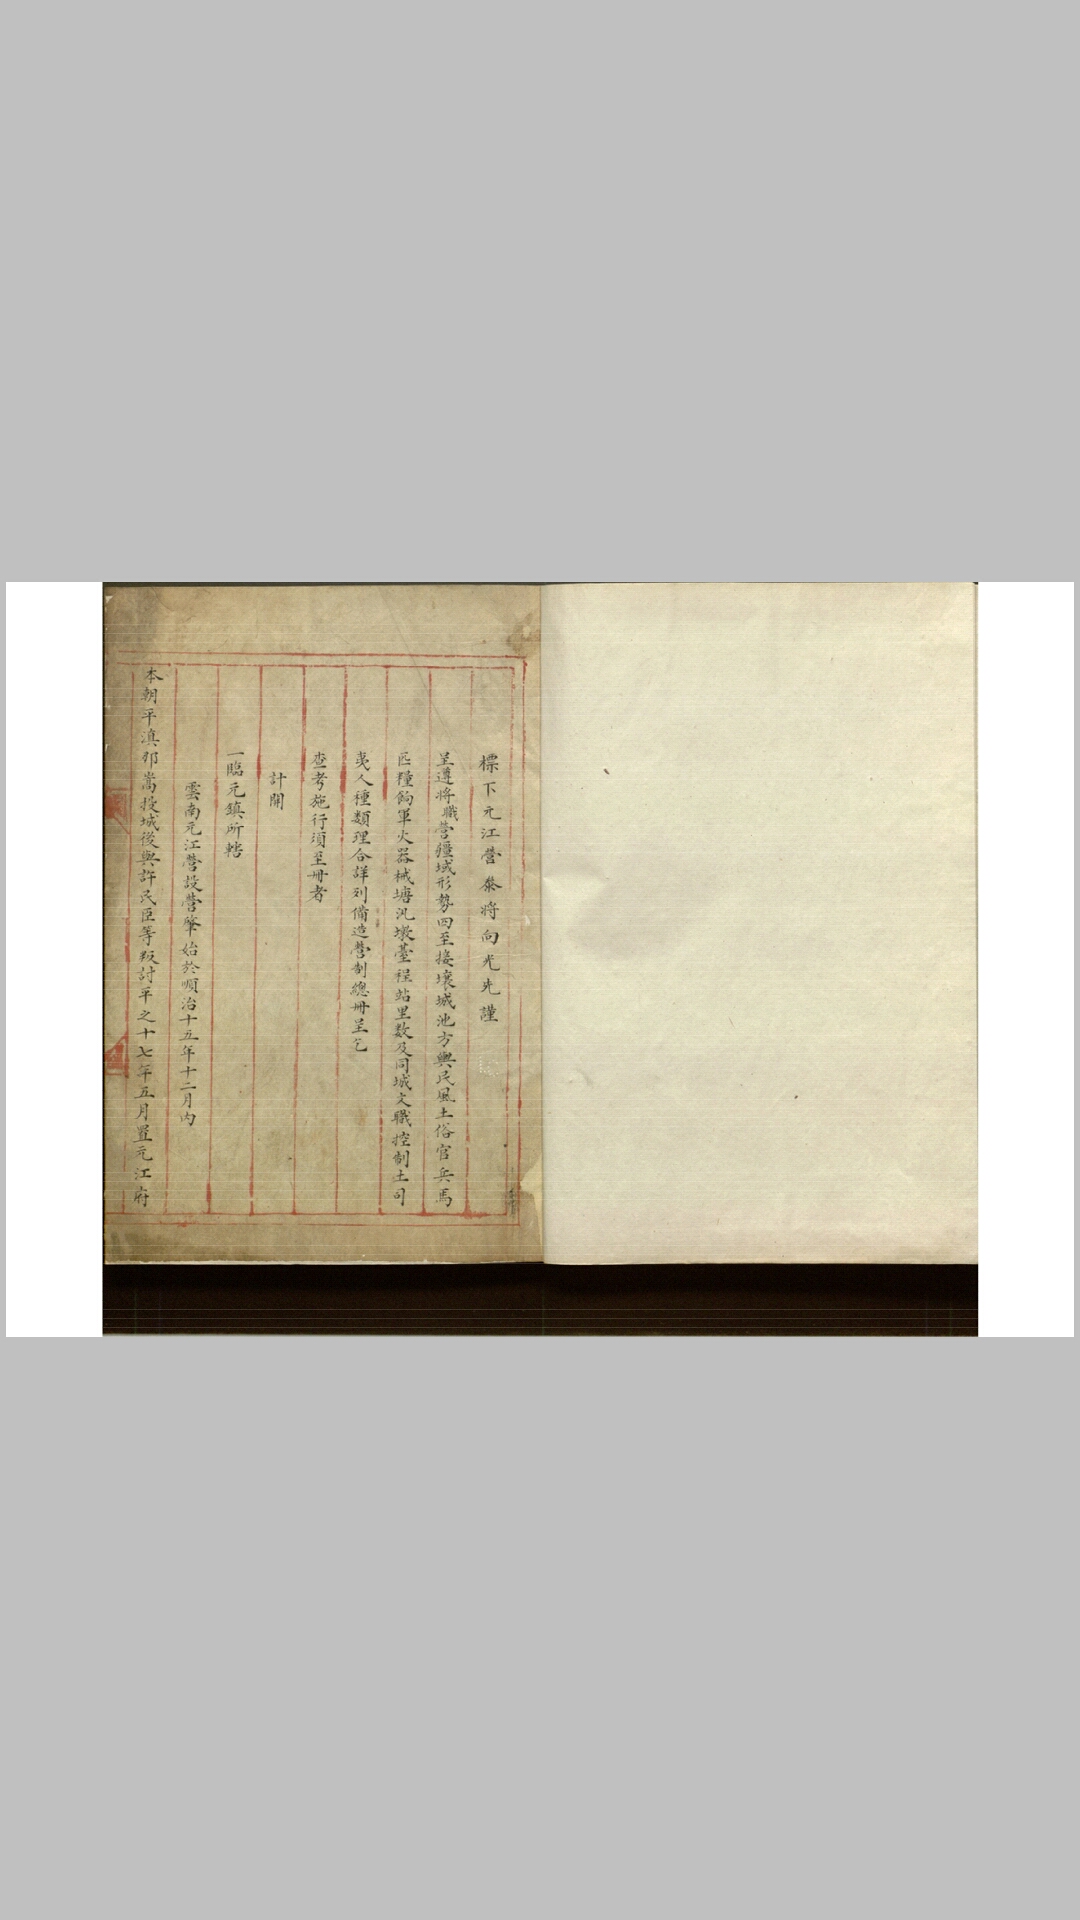 標下元江營叅將向光先謹
呈遵將職營疆域形勢四至接壤城池方輿民風土俗官兵馬
匹糧餉軍火器械塘汛墩臺程站里数及同城文職控制土司
夷人種類理合詳列備造營制總冊呈乞
查考施行須至冊者
計開
一臨元鎮所轄
雲南元江營設營肇始於順治十五年十二月內
本朝平滇那嵩投城後與許氏臣等叛討平之十七年五月置元江府